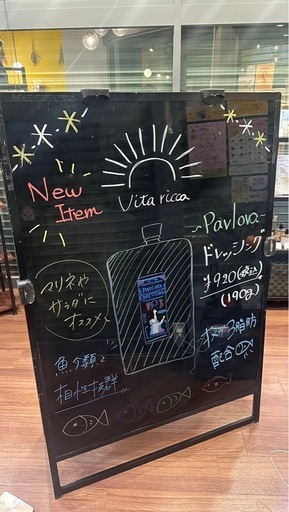 New
Item
Vita ricca
~Pavlova~
ドレッシング
¥920(税込)
(190g)
マリネや
サラダに
オススメ
PAVLOVA
DRESSING
魚介類と
相性抜群
オメガ3脂肪
配合